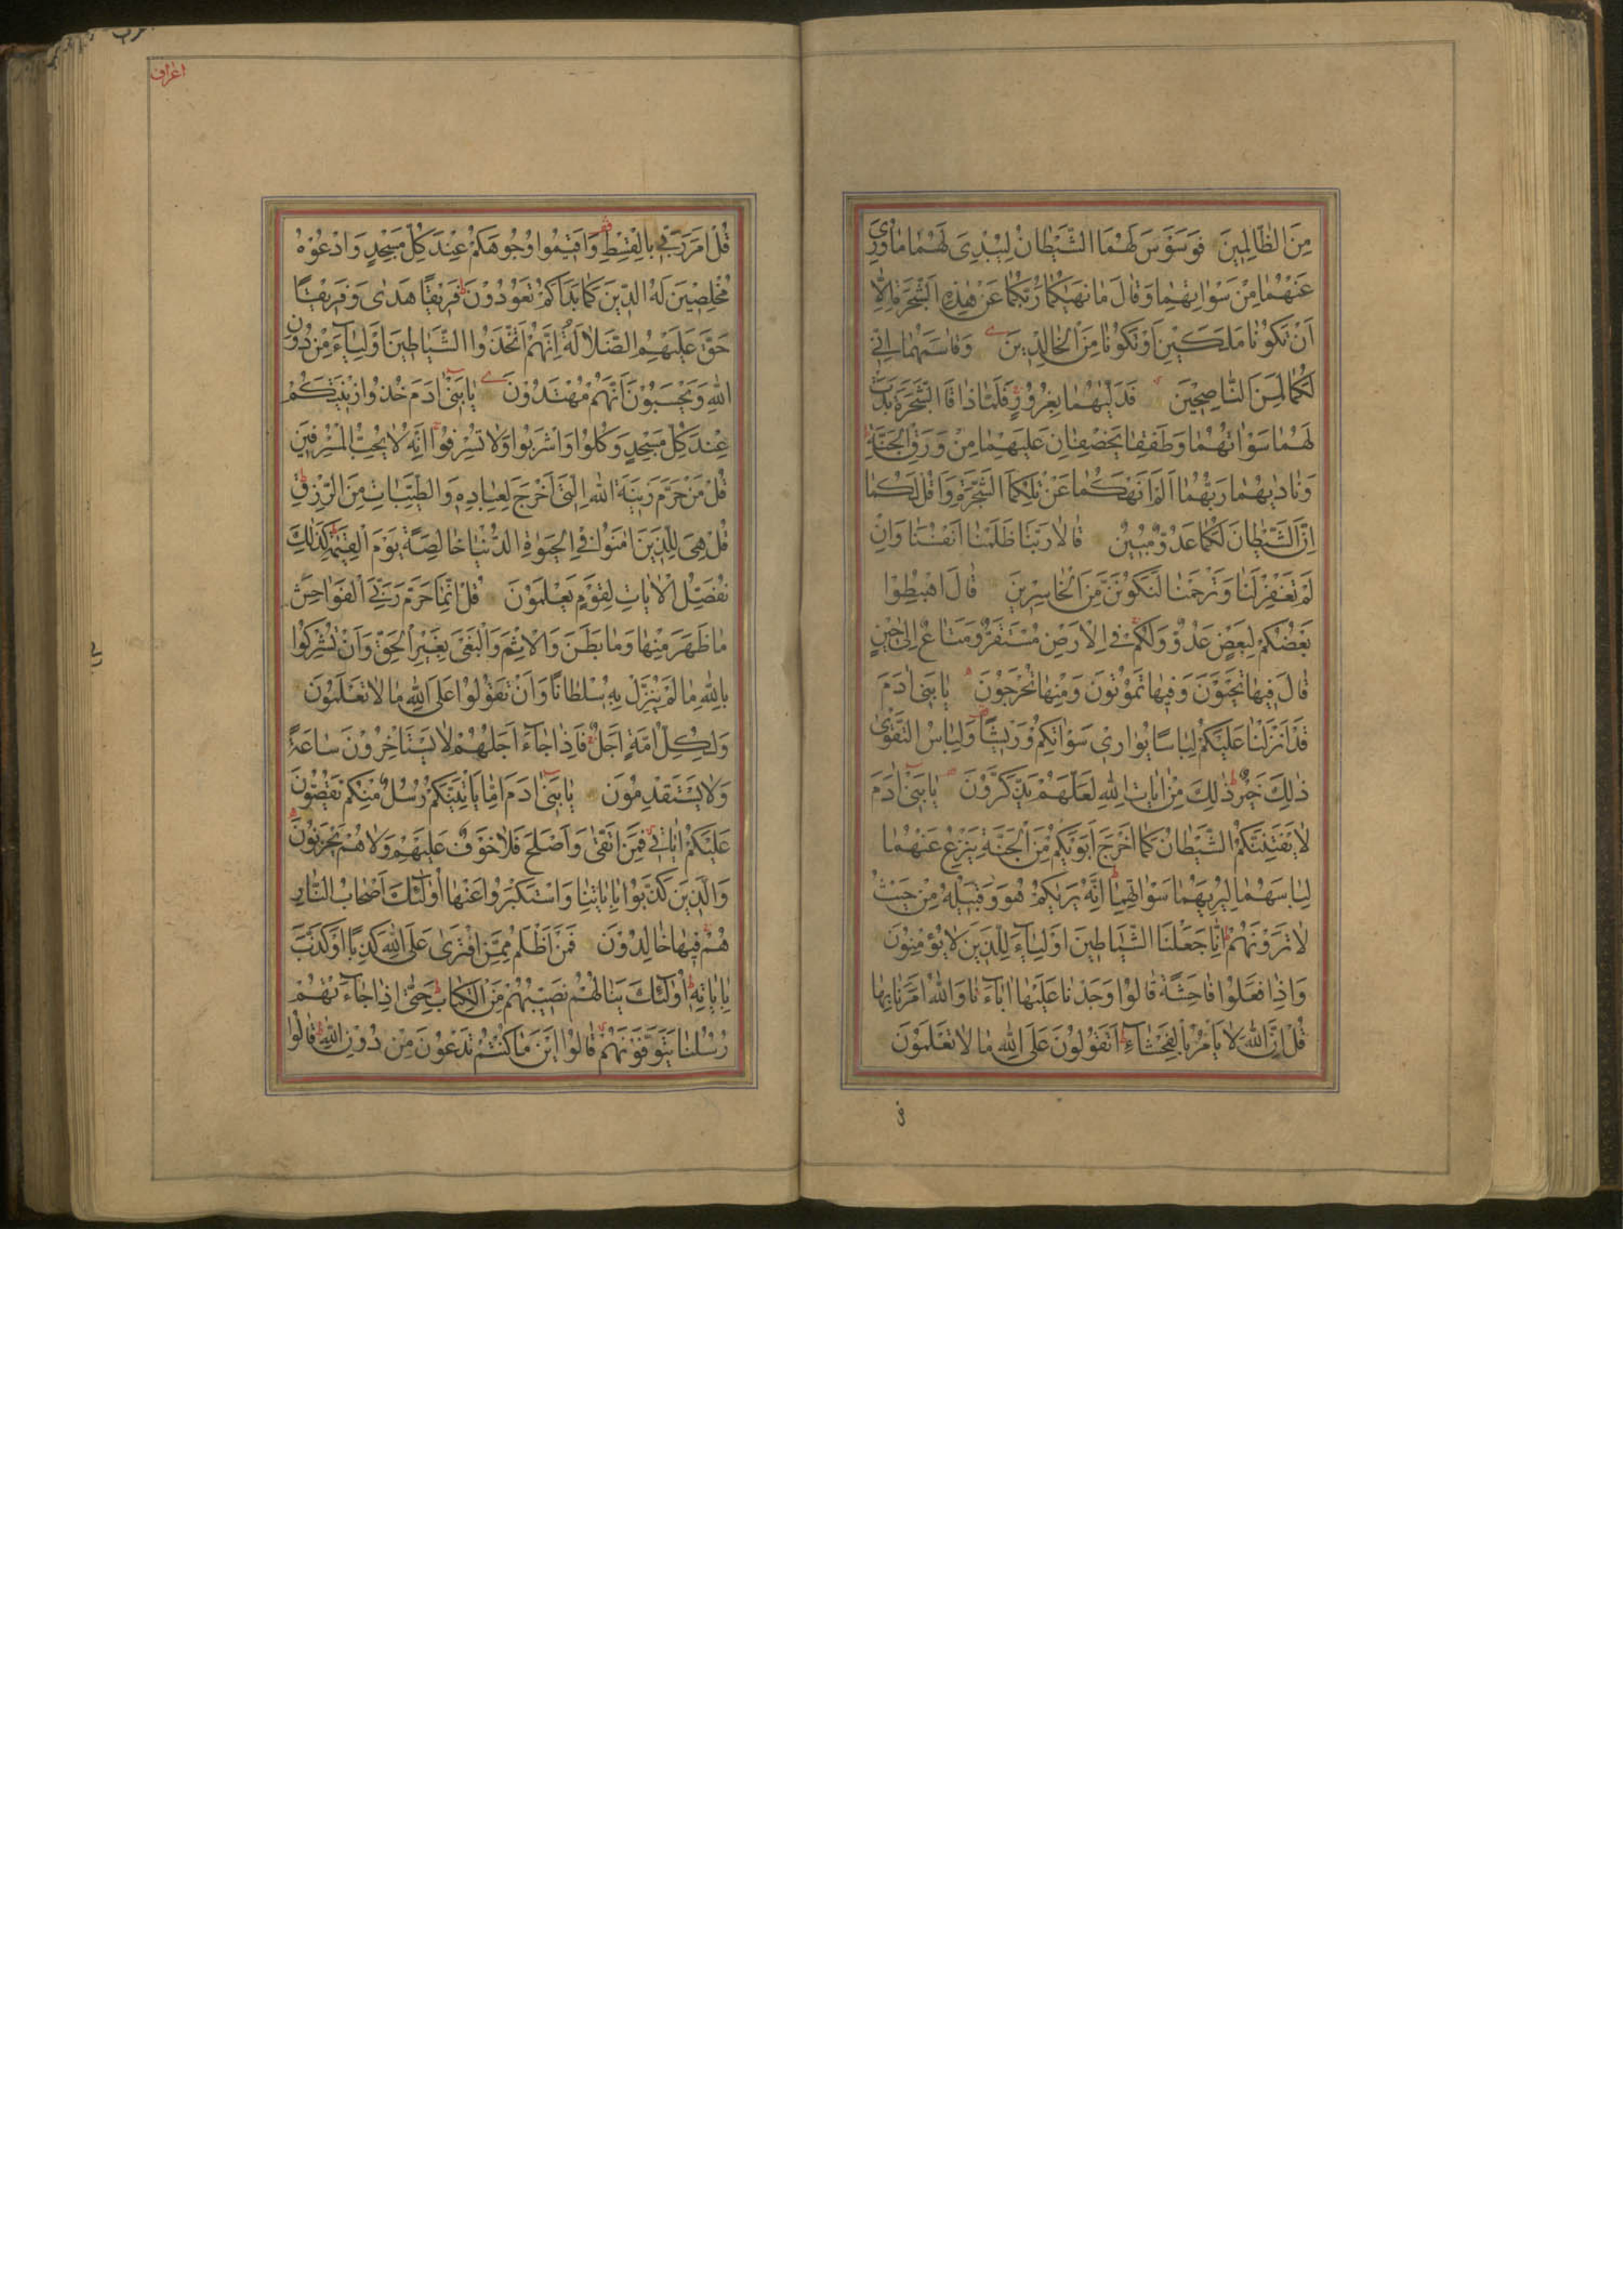 مِنَ الظَّالِمِينَ فَوَسْوَسَ لَهُمَا الشَّيْطَانُ لِيُبْدِيَ لَهُمَا مَا وُرِيَ
عَنْهُمَا مِنْ سَوْاتِهِمَا وَقَالَ مَا نَهٰيكُمَا رَبُّكُمَا عَنْ هٰذِهِ الشَّجَرَةِ اِلَّا
اَنْ تَكُونَا مَلَكَيْنِ اَوْ تَكُونَا مِنَ الْخَالِدِينَ وَقَاسَمَهُمَا اِنِّي
لَكُمَا لَمِنَ النَّاصِحِينَ فَدَلّٰيهُمَا بِغُرُورٍ فَلَمَّا ذَاقَا الشَّجَرَةَ بَدَتْ
لَهُمَا سَوْاتُهُمَا وَطَفِقَا يَخْصِفَانِ عَلَيْهِمَا مِنْ وَرَقِ الْجَنَّةِ
وَنَادٰيهُمَا رَبُّهُمَا اَلَمْ اَنْهَكُمَا عَنْ تِلْكُمَا الشَّجَرَةِ وَاَقُلْ لَكُمَا
اِنَّ الشَّيْطَانَ لَكُمَا عَدُوٌّ مُبِينٌ قَالَا رَبَّنَا ظَلَمْنَا اَنْفُسَنَا وَاِنْ
لَمْ تَغْفِرْ لَنَا وَتَرْحَمْنَا لَنَكُونَنَّ مِنَ الْخَاسِرِينَ قَالَ اهْبِطُوا
بَعْضُكُمْ لِبَعْضٍ عَدُوٌّ وَلَكُمْ فِي الْاَرْضِ مُسْتَقَرٌّ وَمَتَاعٌ اِلٰى حِينٍ
قَالَ فِيهَا تَحْيَوْنَ وَفِيهَا تَمُوتُونَ وَمِنْهَا تُخْرَجُونَ يَا بَنِي اٰدَمَ
قَدْ اَنْزَلْنَا عَلَيْكُمْ لِبَاسًا يُوَارِي سَوْاتِكُمْ وَرِيشًا وَلِبَاسُ التَّقْوٰى
ذٰلِكَ خَيْرٌ ذٰلِكَ مِنْ اٰيَاتِ اللّٰهِ لَعَلَّهُمْ يَذَّكَّرُونَ يَا بَنِي اٰدَمَ
لَا يَفْتِنَنَّكُمُ الشَّيْطَانُ كَمَا اَخْرَجَ اَبَوَيْكُمْ مِنَ الْجَنَّةِ يَنْزِعُ عَنْهُمَا
لِبَاسَهُمَا لِيُرِيَهُمَا سَوْاتِهِمَا اِنَّهُ يَرٰيكُمْ هُوَ وَقَبِيلُهُ مِنْ حَيْثُ
لَا تَرَوْنَهُمْ اِنَّا جَعَلْنَا الشَّيَاطِينَ اَوْلِيَاءَ لِلَّذِينَ لَا يُؤْمِنُونَ
وَاِذَا فَعَلُوا فَاحِشَةً قَالُوا وَجَدْنَا عَلَيْهَا اٰبَاءَنَا وَاللّٰهُ اَمَرَنَا بِهَا
قُلْ اِنَّ اللّٰهَ لَا يَاْمُرُ بِالْفَحْشَاءِ اَتَقُولُونَ عَلَى اللّٰهِ مَا لَا تَعْلَمُونَ
اعراف
قُلْ اَمَرَ رَبِّي بِالْقِسْطِ وَاَقِيمُوا وُجُوهَكُمْ عِنْدَ كُلِّ مَسْجِدٍ وَادْعُوهُ
مُخْلِصِينَ لَهُ الدِّينَ كَمَا بَدَاَكُمْ تَعُودُونَ فَرِيقًا هَدٰى وَفَرِيقًا
حَقَّ عَلَيْهِمُ الضَّلَالَةُ اِنَّهُمُ اتَّخَذُوا الشَّيَاطِينَ اَوْلِيَاءَ مِنْ دُونِ
اللّٰهِ وَيَحْسَبُونَ اَنَّهُمْ مُهْتَدُونَ يَا بَنِي اٰدَمَ خُذُوا زِينَتَكُمْ
عِنْدَ كُلِّ مَسْجِدٍ وَكُلُوا وَاشْرَبُوا وَلَا تُسْرِفُوا اِنَّهُ لَا يُحِبُّ الْمُسْرِفِينَ
قُلْ مَنْ حَرَّمَ زِينَةَ اللّٰهِ الَّتِي اَخْرَجَ لِعِبَادِهِ وَالطَّيِّبَاتِ مِنَ الرِّزْقِ
قُلْ هِيَ لِلَّذِينَ اٰمَنُوا فِي الْحَيٰوةِ الدُّنْيَا خَالِصَةً يَوْمَ الْقِيٰمَةِ كَذٰلِكَ
نُفَصِّلُ الْاٰيَاتِ لِقَوْمٍ يَعْلَمُونَ قُلْ اِنَّمَا حَرَّمَ رَبِّيَ الْفَوَاحِشَ
مَا ظَهَرَ مِنْهَا وَمَا بَطَنَ وَالْاِثْمَ وَالْبَغْيَ بِغَيْرِ الْحَقِّ وَاَنْ تُشْرِكُوا
بِاللّٰهِ مَا لَمْ يُنَزِّلْ بِهِ سُلْطَانًا وَاَنْ تَقُولُوا عَلَى اللّٰهِ مَا لَا تَعْلَمُونَ
وَلِكُلِّ اُمَّةٍ اَجَلٌ فَاِذَا جَاءَ اَجَلُهُمْ لَا يَسْتَاْخِرُونَ سَاعَةً
وَلَا يَسْتَقْدِمُونَ يَا بَنِي اٰدَمَ اِمَّا يَاْتِيَنَّكُمْ رُسُلٌ مِنْكُمْ يَقُصُّونَ
عَلَيْكُمْ اٰيَاتِي فَمَنِ اتَّقٰى وَاَصْلَحَ فَلَا خَوْفٌ عَلَيْهِمْ وَلَا هُمْ يَحْزَنُونَ
وَالَّذِينَ كَذَّبُوا بِاٰيَاتِنَا وَاسْتَكْبَرُوا عَنْهَا اُولٰئِكَ اَصْحَابُ النَّارِ
هُمْ فِيهَا خَالِدُونَ فَمَنْ اَظْلَمُ مِمَّنِ افْتَرٰى عَلَى اللّٰهِ كَذِبًا اَوْ كَذَّبَ
بِاٰيَاتِهِ اُولٰئِكَ يَنَالُهُمْ نَصِيبُهُمْ مِنَ الْكِتَابِ حَتّٰى اِذَا جَاءَتْهُمْ
رُسُلُنَا يَتَوَفَّوْنَهُمْ قَالُوا اَيْنَ مَا كُنْتُمْ تَدْعُونَ مِنْ دُونِ اللّٰهِ قَالُوا